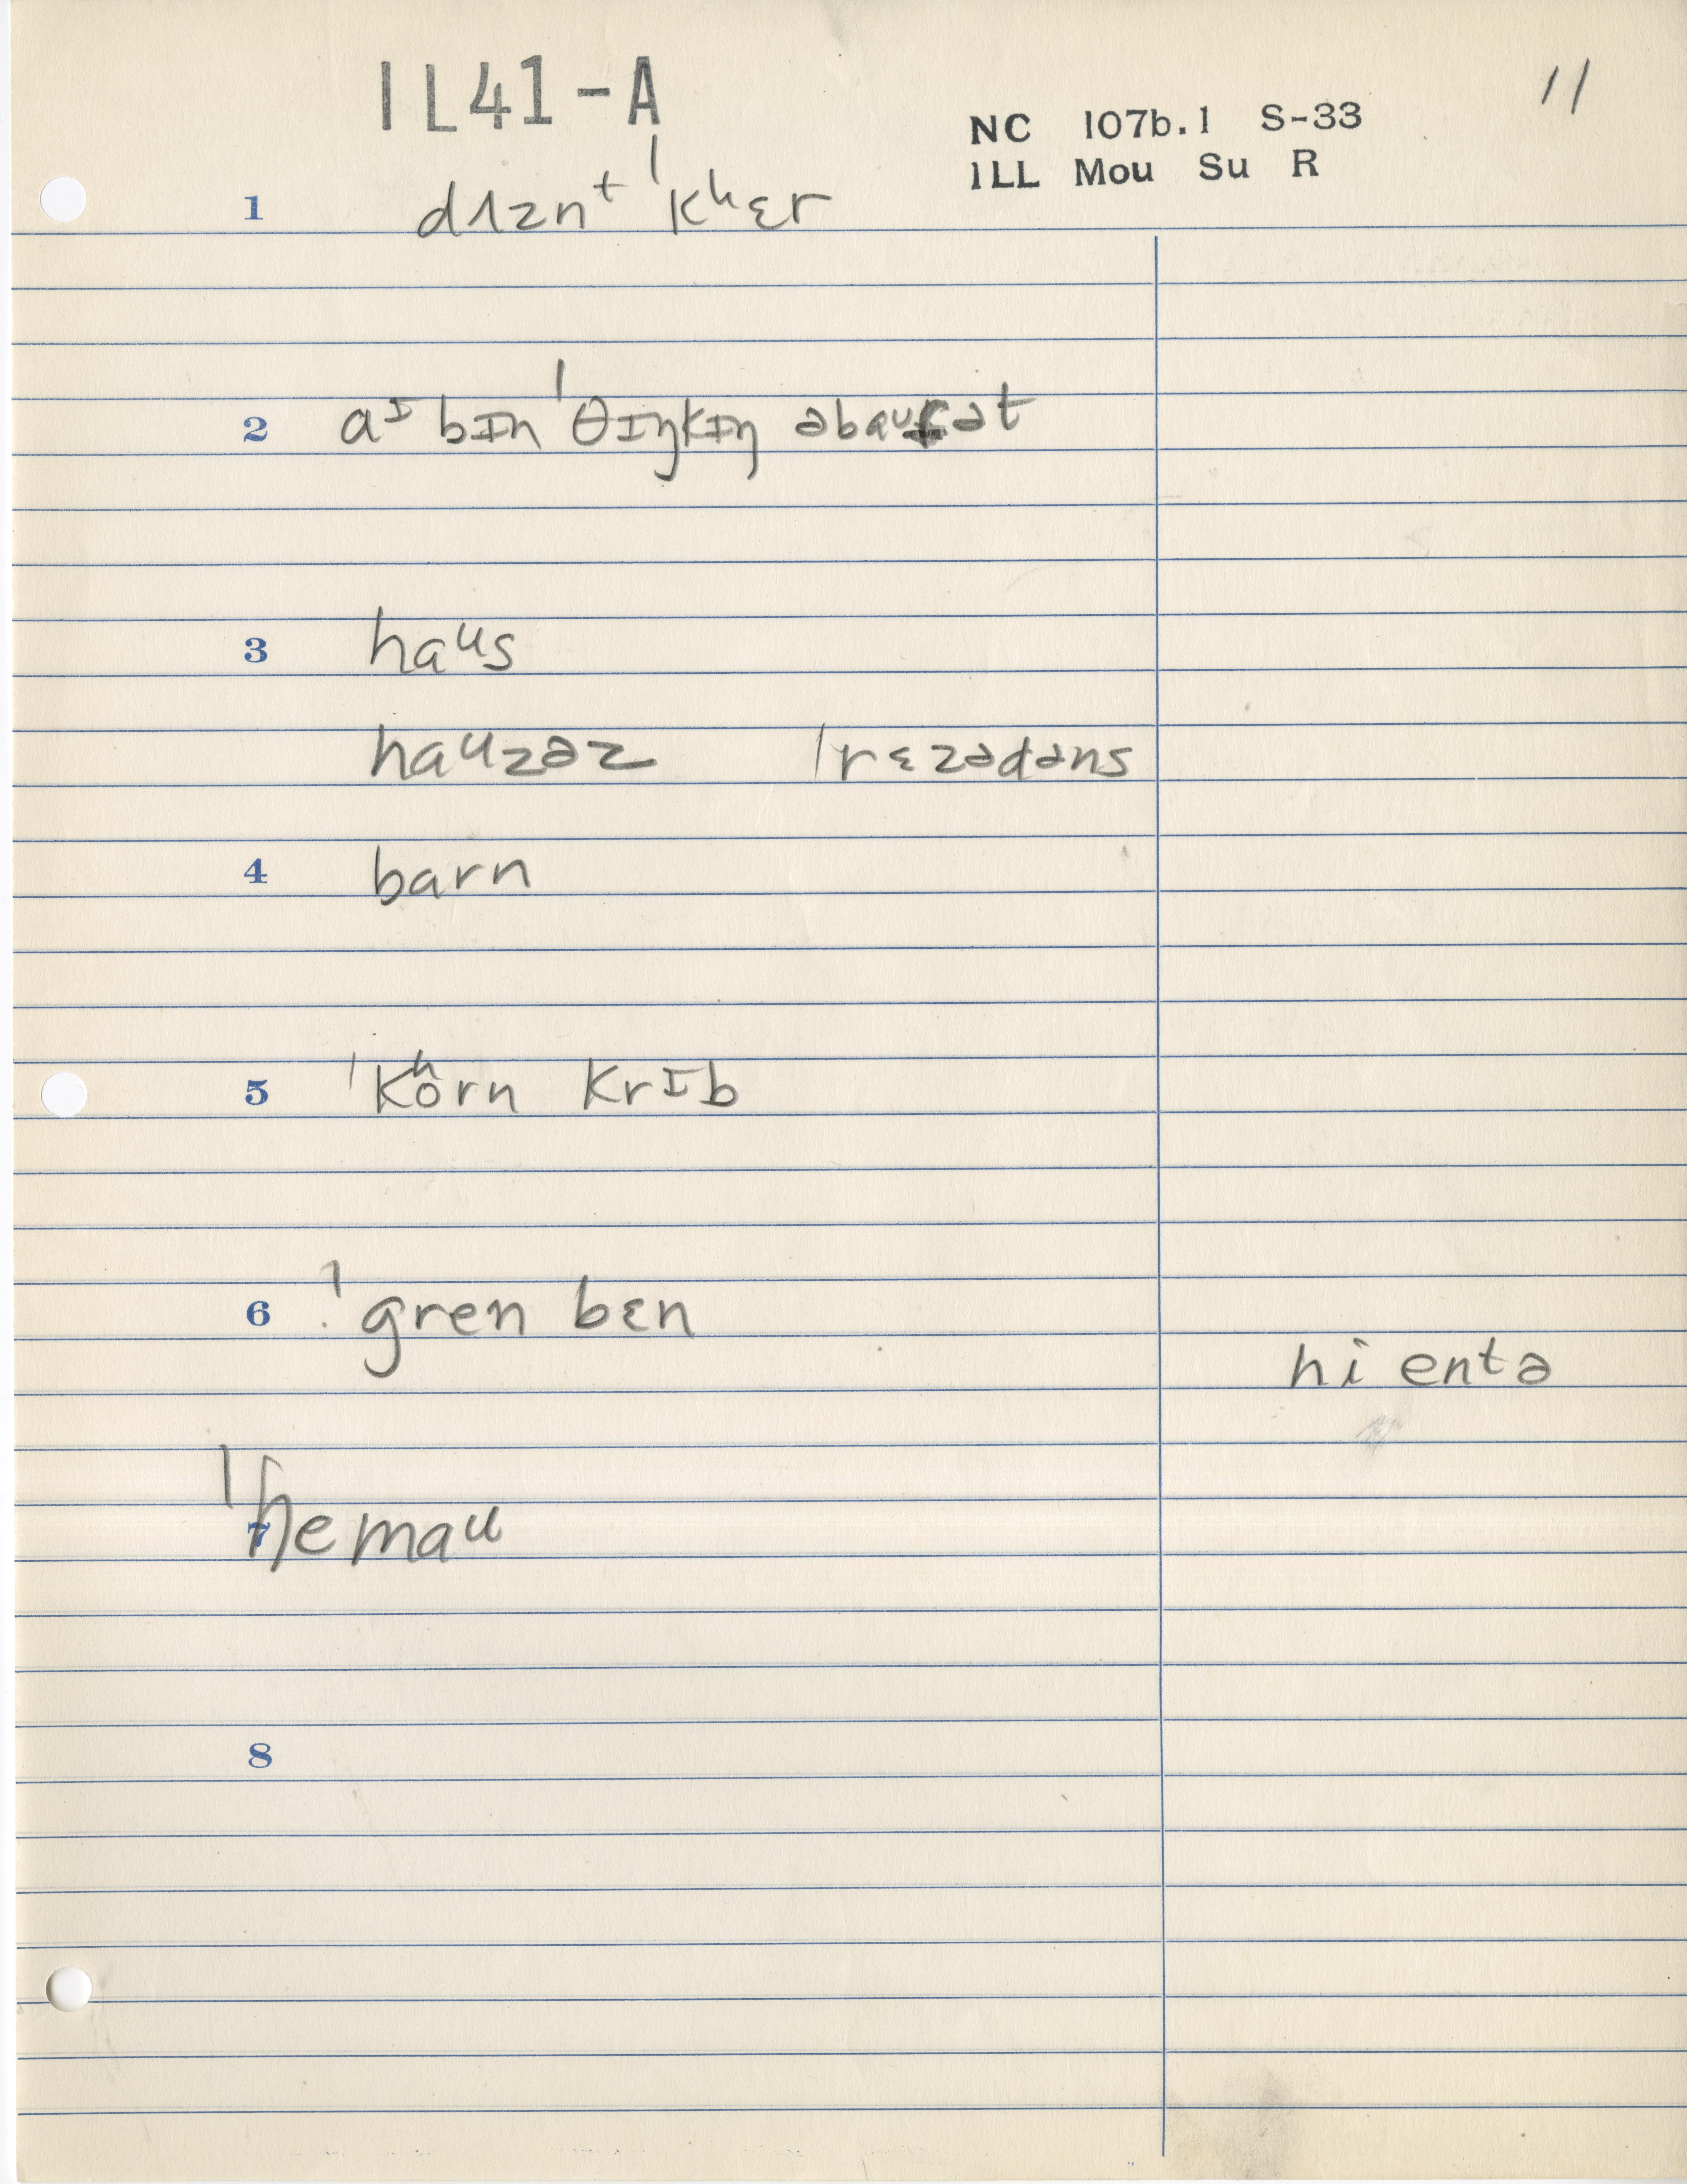 IL41-A
11
NC 107b.1 S-33
ILL Mou Su R
1 dʌznᵗ ˈkʰɛr
2 aᶦ bɪn ˈθɪŋkɪŋ əbaᵘt ət
3 haᵘs
haᵘzəz ˈrɛzədəns
4 barn
5 ˈkʰorn krɪb
6 ˈgren bɛn
hi entə
7 ˈhemaᵘ
8